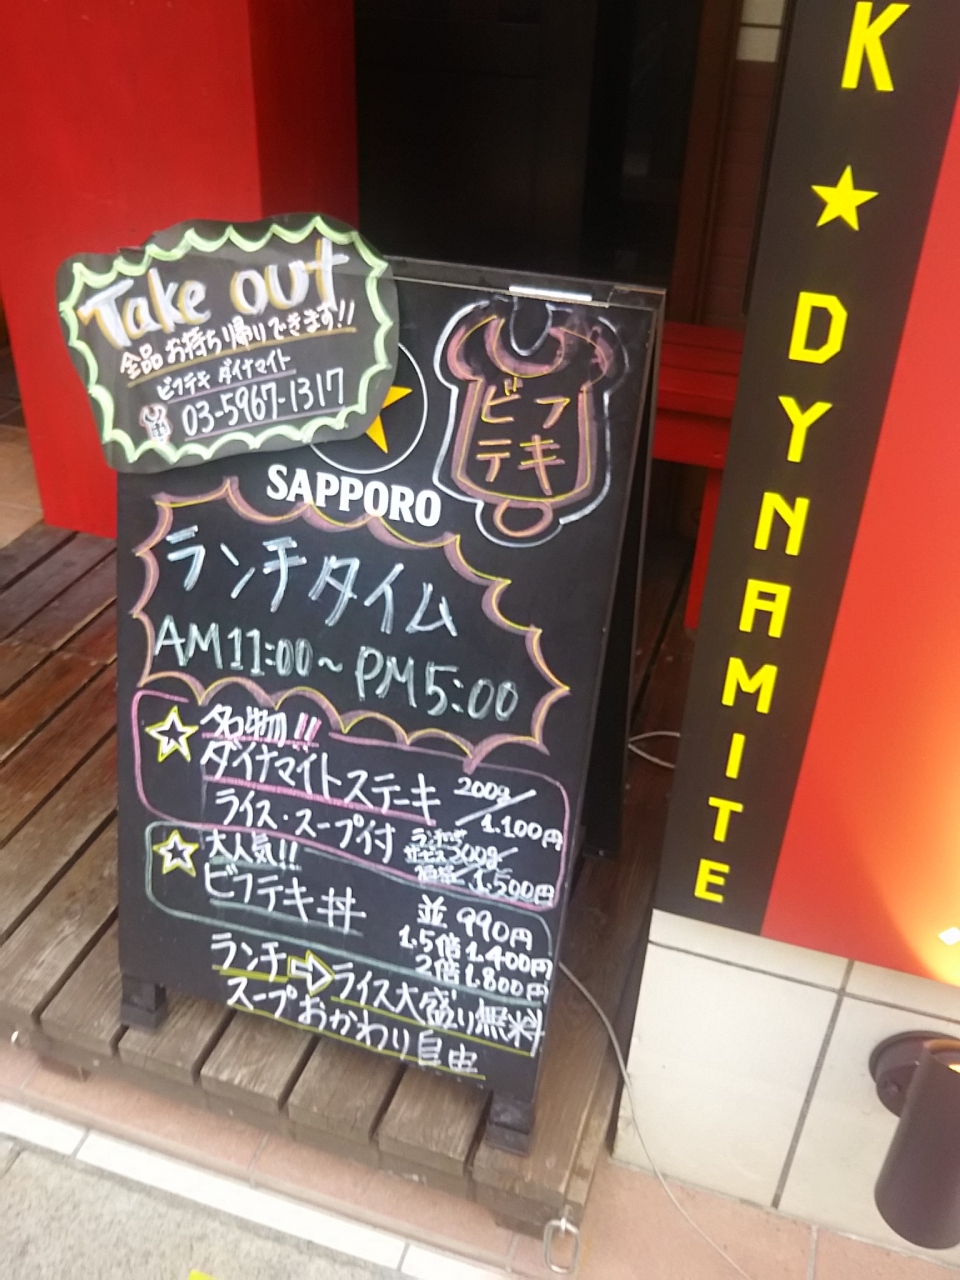 K★DYNAMITE
Take out
全品お持ち帰りできます!!
ビフテキ ダイナマイト
03-5967-1317
SAPPORO
ビフ
テキ
ランチタイム
AM11:00~PM5:00
名物!!
ダイナマイトステーキ 200g/1.100円
ライス・スープ付
サービス 300g/1.500円
大人気!!
ビフテキ丼 並 990円
1.5倍 1.400円
2倍 1.800円
ランチ⇨ライス大盛り無料
スープおかわり自由